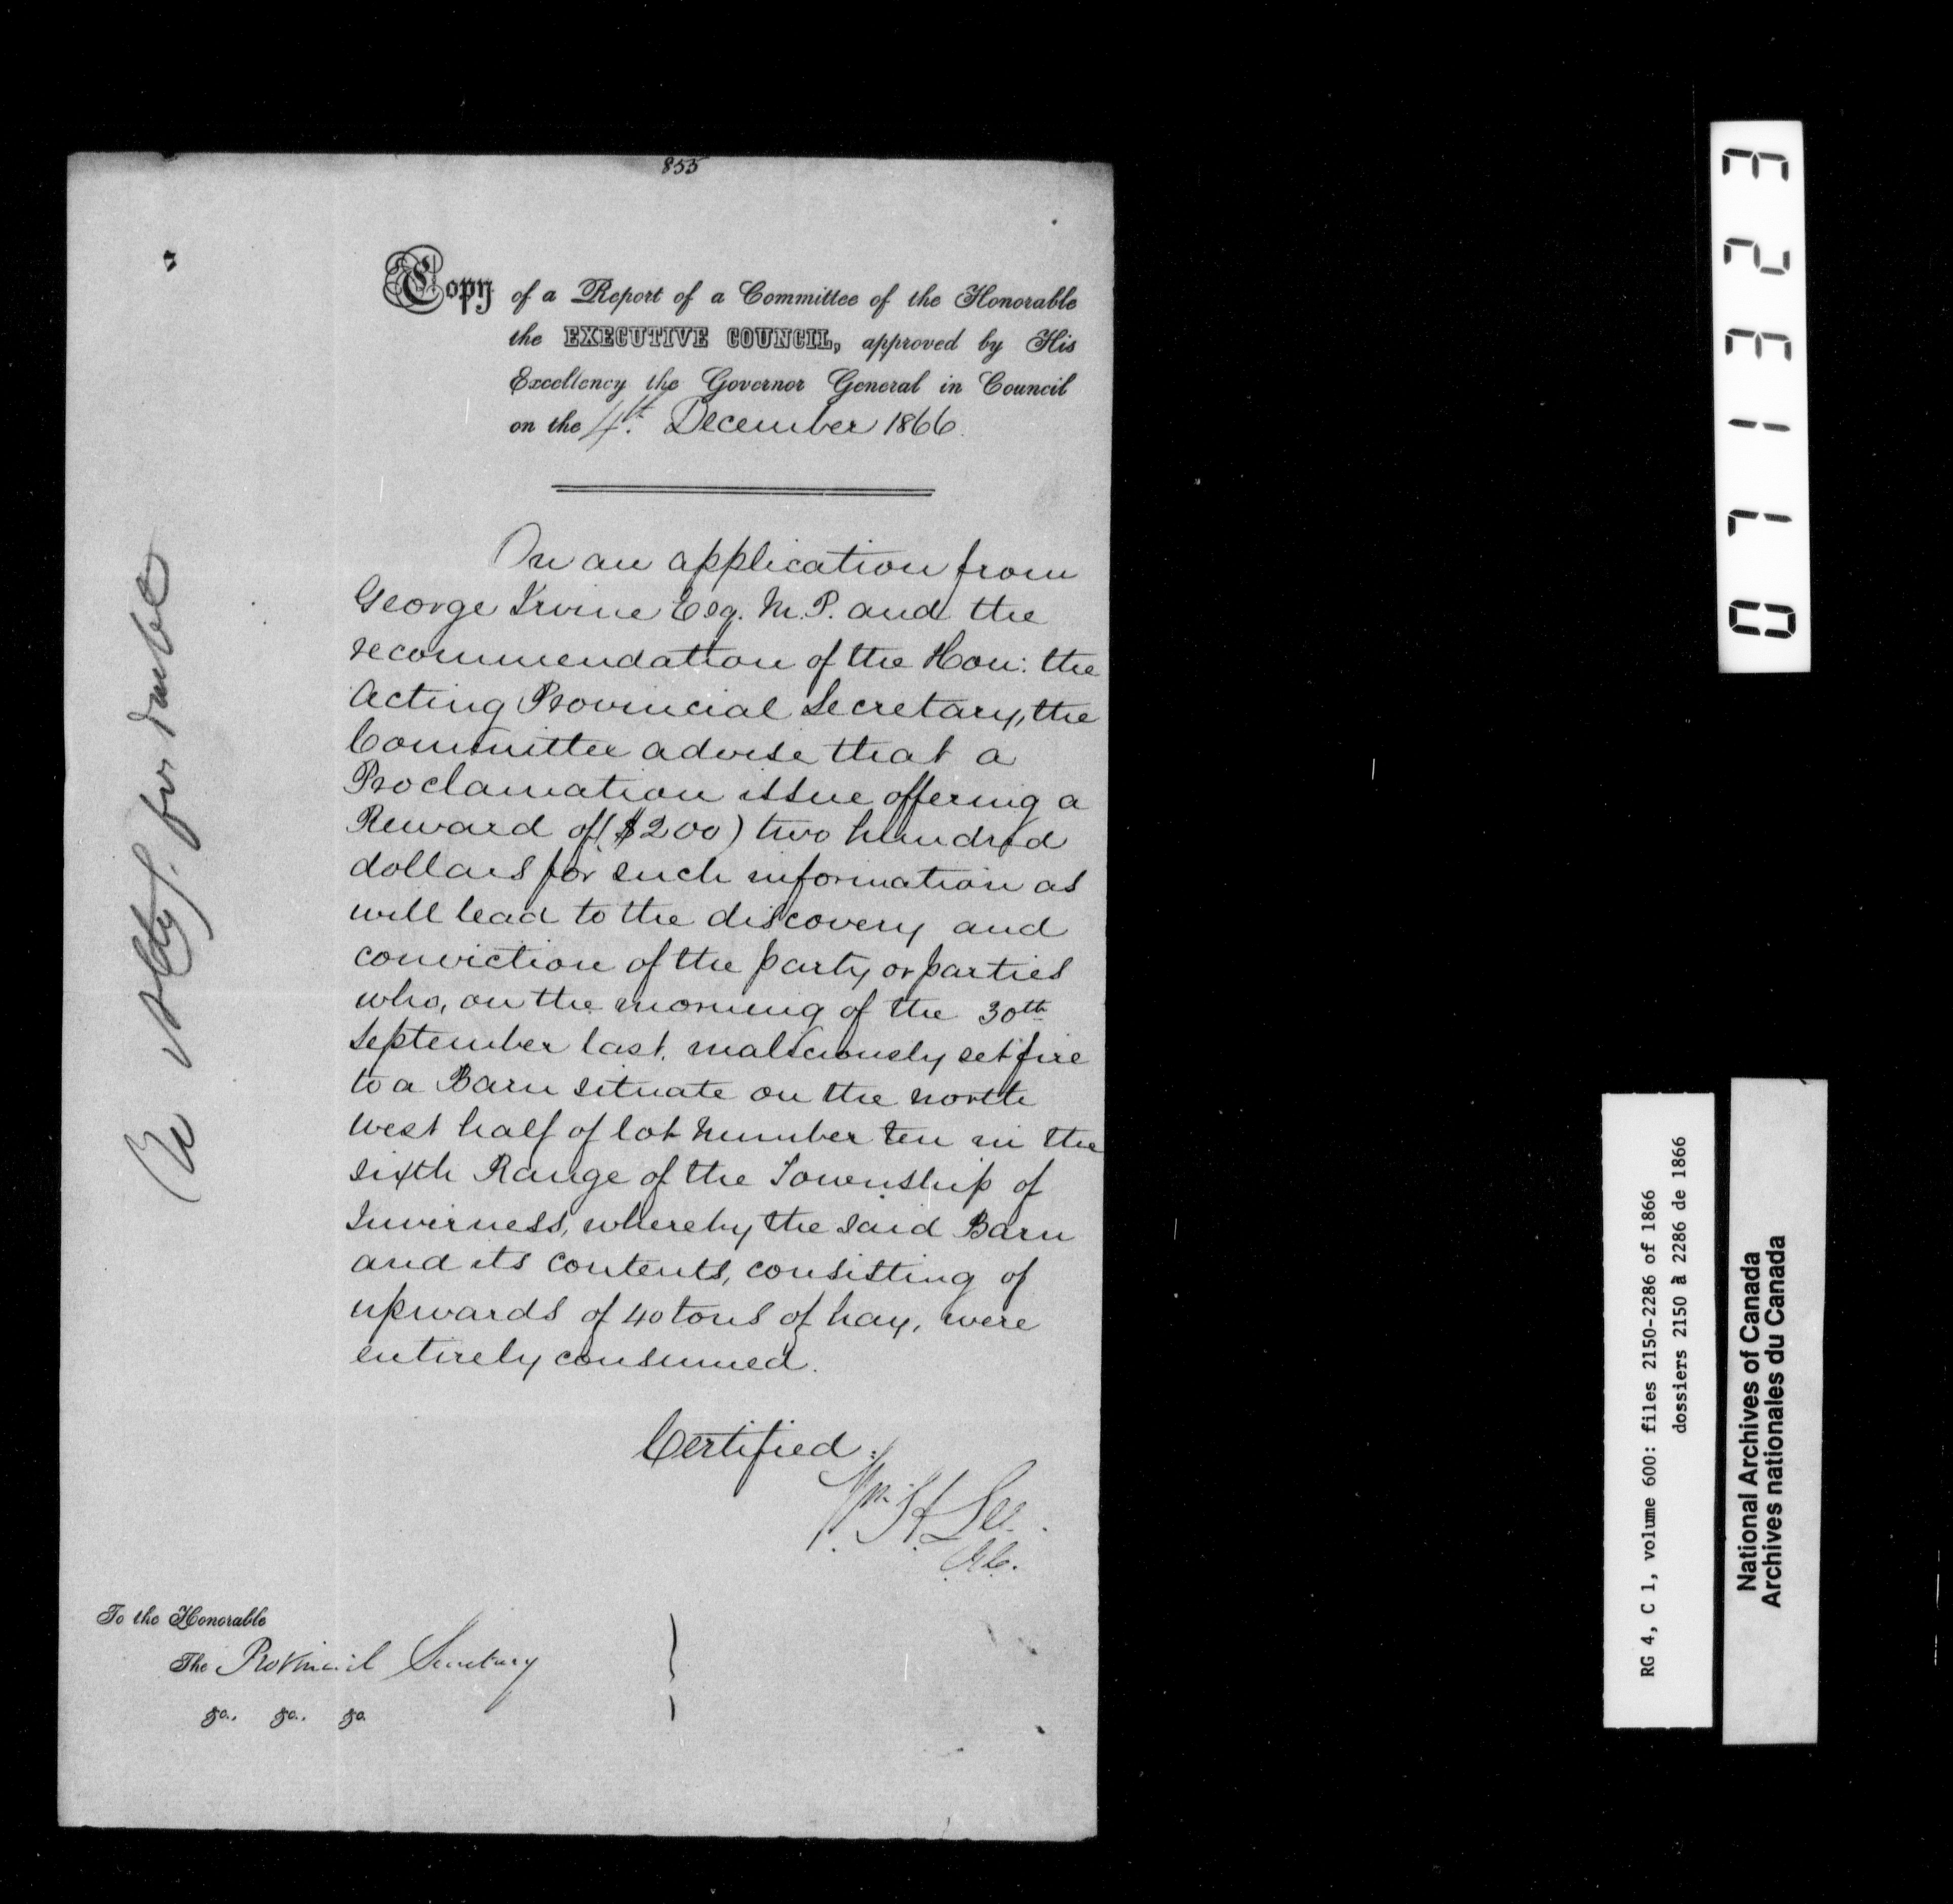 855
Copy of a Report of a Committee of the Honorable
the EXECUTIVE COUNCIL, approved by His
Excellency the Governor General in Council
on the 4th. December 1866.
On an application from
George Irvine Esq. M.P. and the
recommendation of the Hon: the
Acting Provincial Secretary, the
Committee advise that a
Proclamation issue offering a
Reward of ($200) two hundred
dollars for such information as
will lead to the discovery and
conviction of the party or parties
who, on the morning of the 30th
September last, maliciously set fire
to a Barn situate on the north
west half of lot number ten in the
sixth Range of the Township of
Inverness, whereby the said Barn
and its contents, consisting of
upwards of 40 tons of hay, were
entirely consumed.
Certified.
Wm. H Lee
To the Honorable
The Provincial Secretary
&c., &c., &c.
for
071323
RG 4, C 1, volume 600: files 2150-2286 of 1866
dossiers 2150 à 2286 de 1866
National Archives of Canada
Archives nationales du Canada